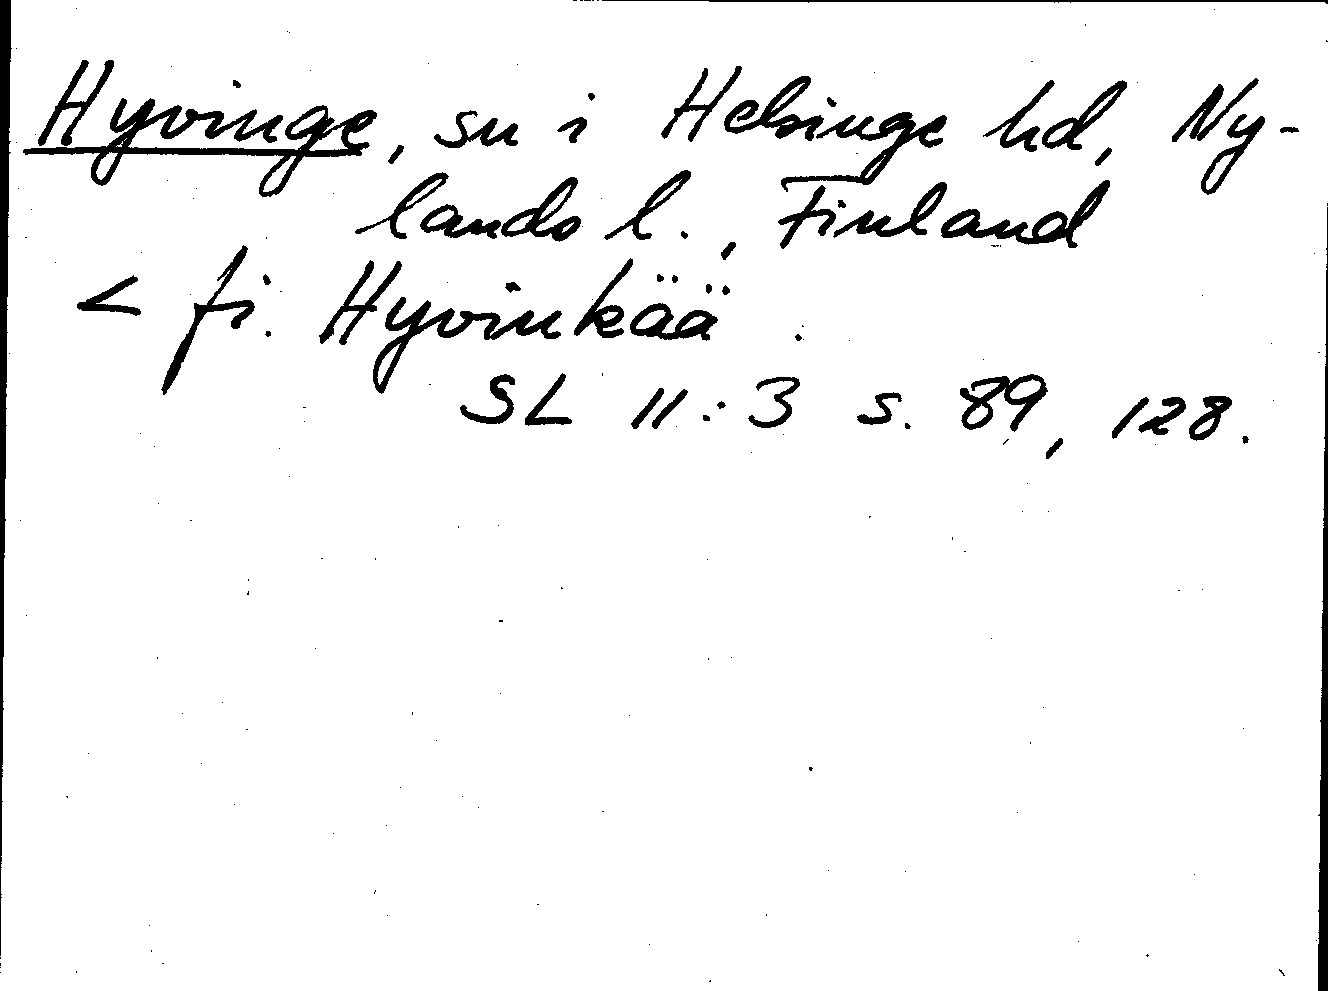 Hyvinge, sn i Helsinge hd, Ny-
lands l., Finland
< fi. Hyvinkää.
SL 11:3 s. 89, 128.